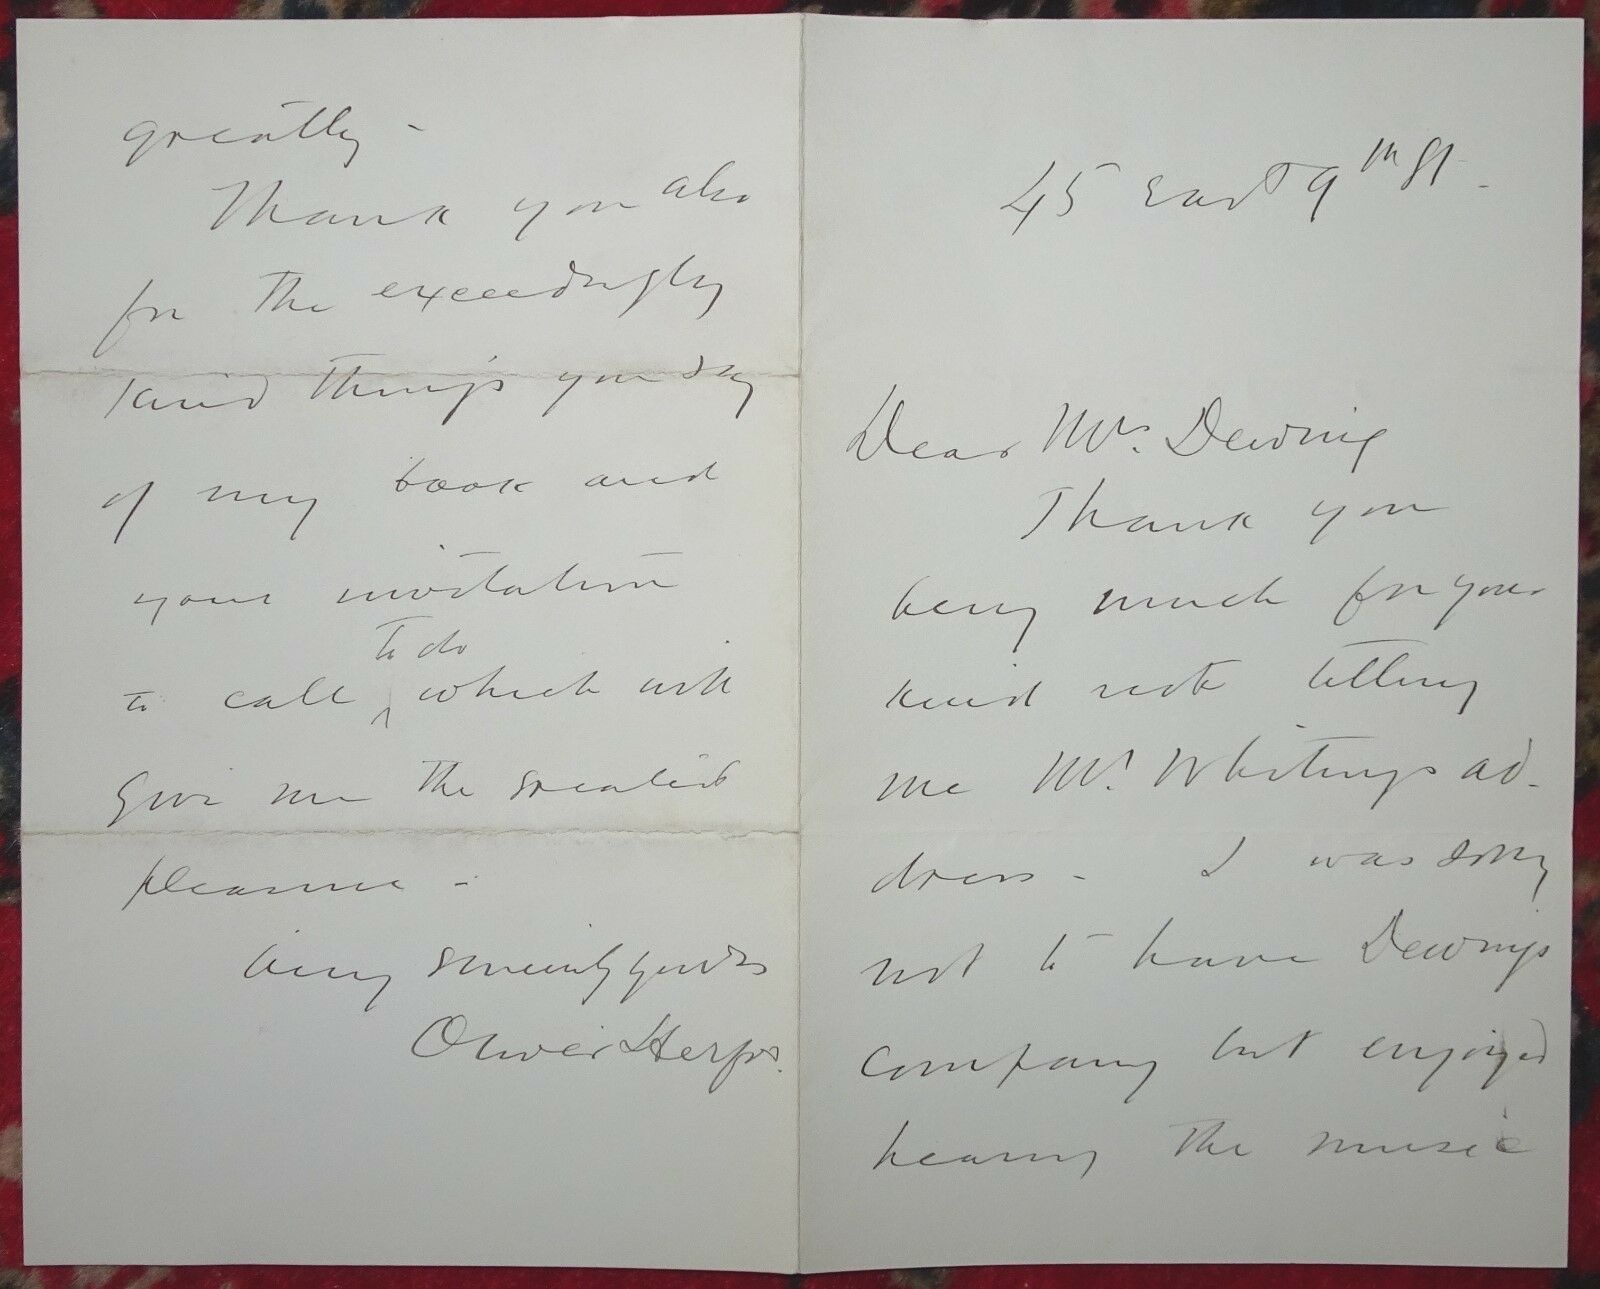 45 East 9th St.
Dear Mrs. Dewing
Thank you
very much for your
kind note telling
me Mr. Whitings ad-
dress - I was sorry
not to have Dewing's
company but enjoyed
hearing the music
greatly -
Thank you also
for the exceedingly
kind things you say
of my book and
your invitation
to do
to call which will
give me the greatest
pleasure -
very sincerely yours
Oliver Herford.